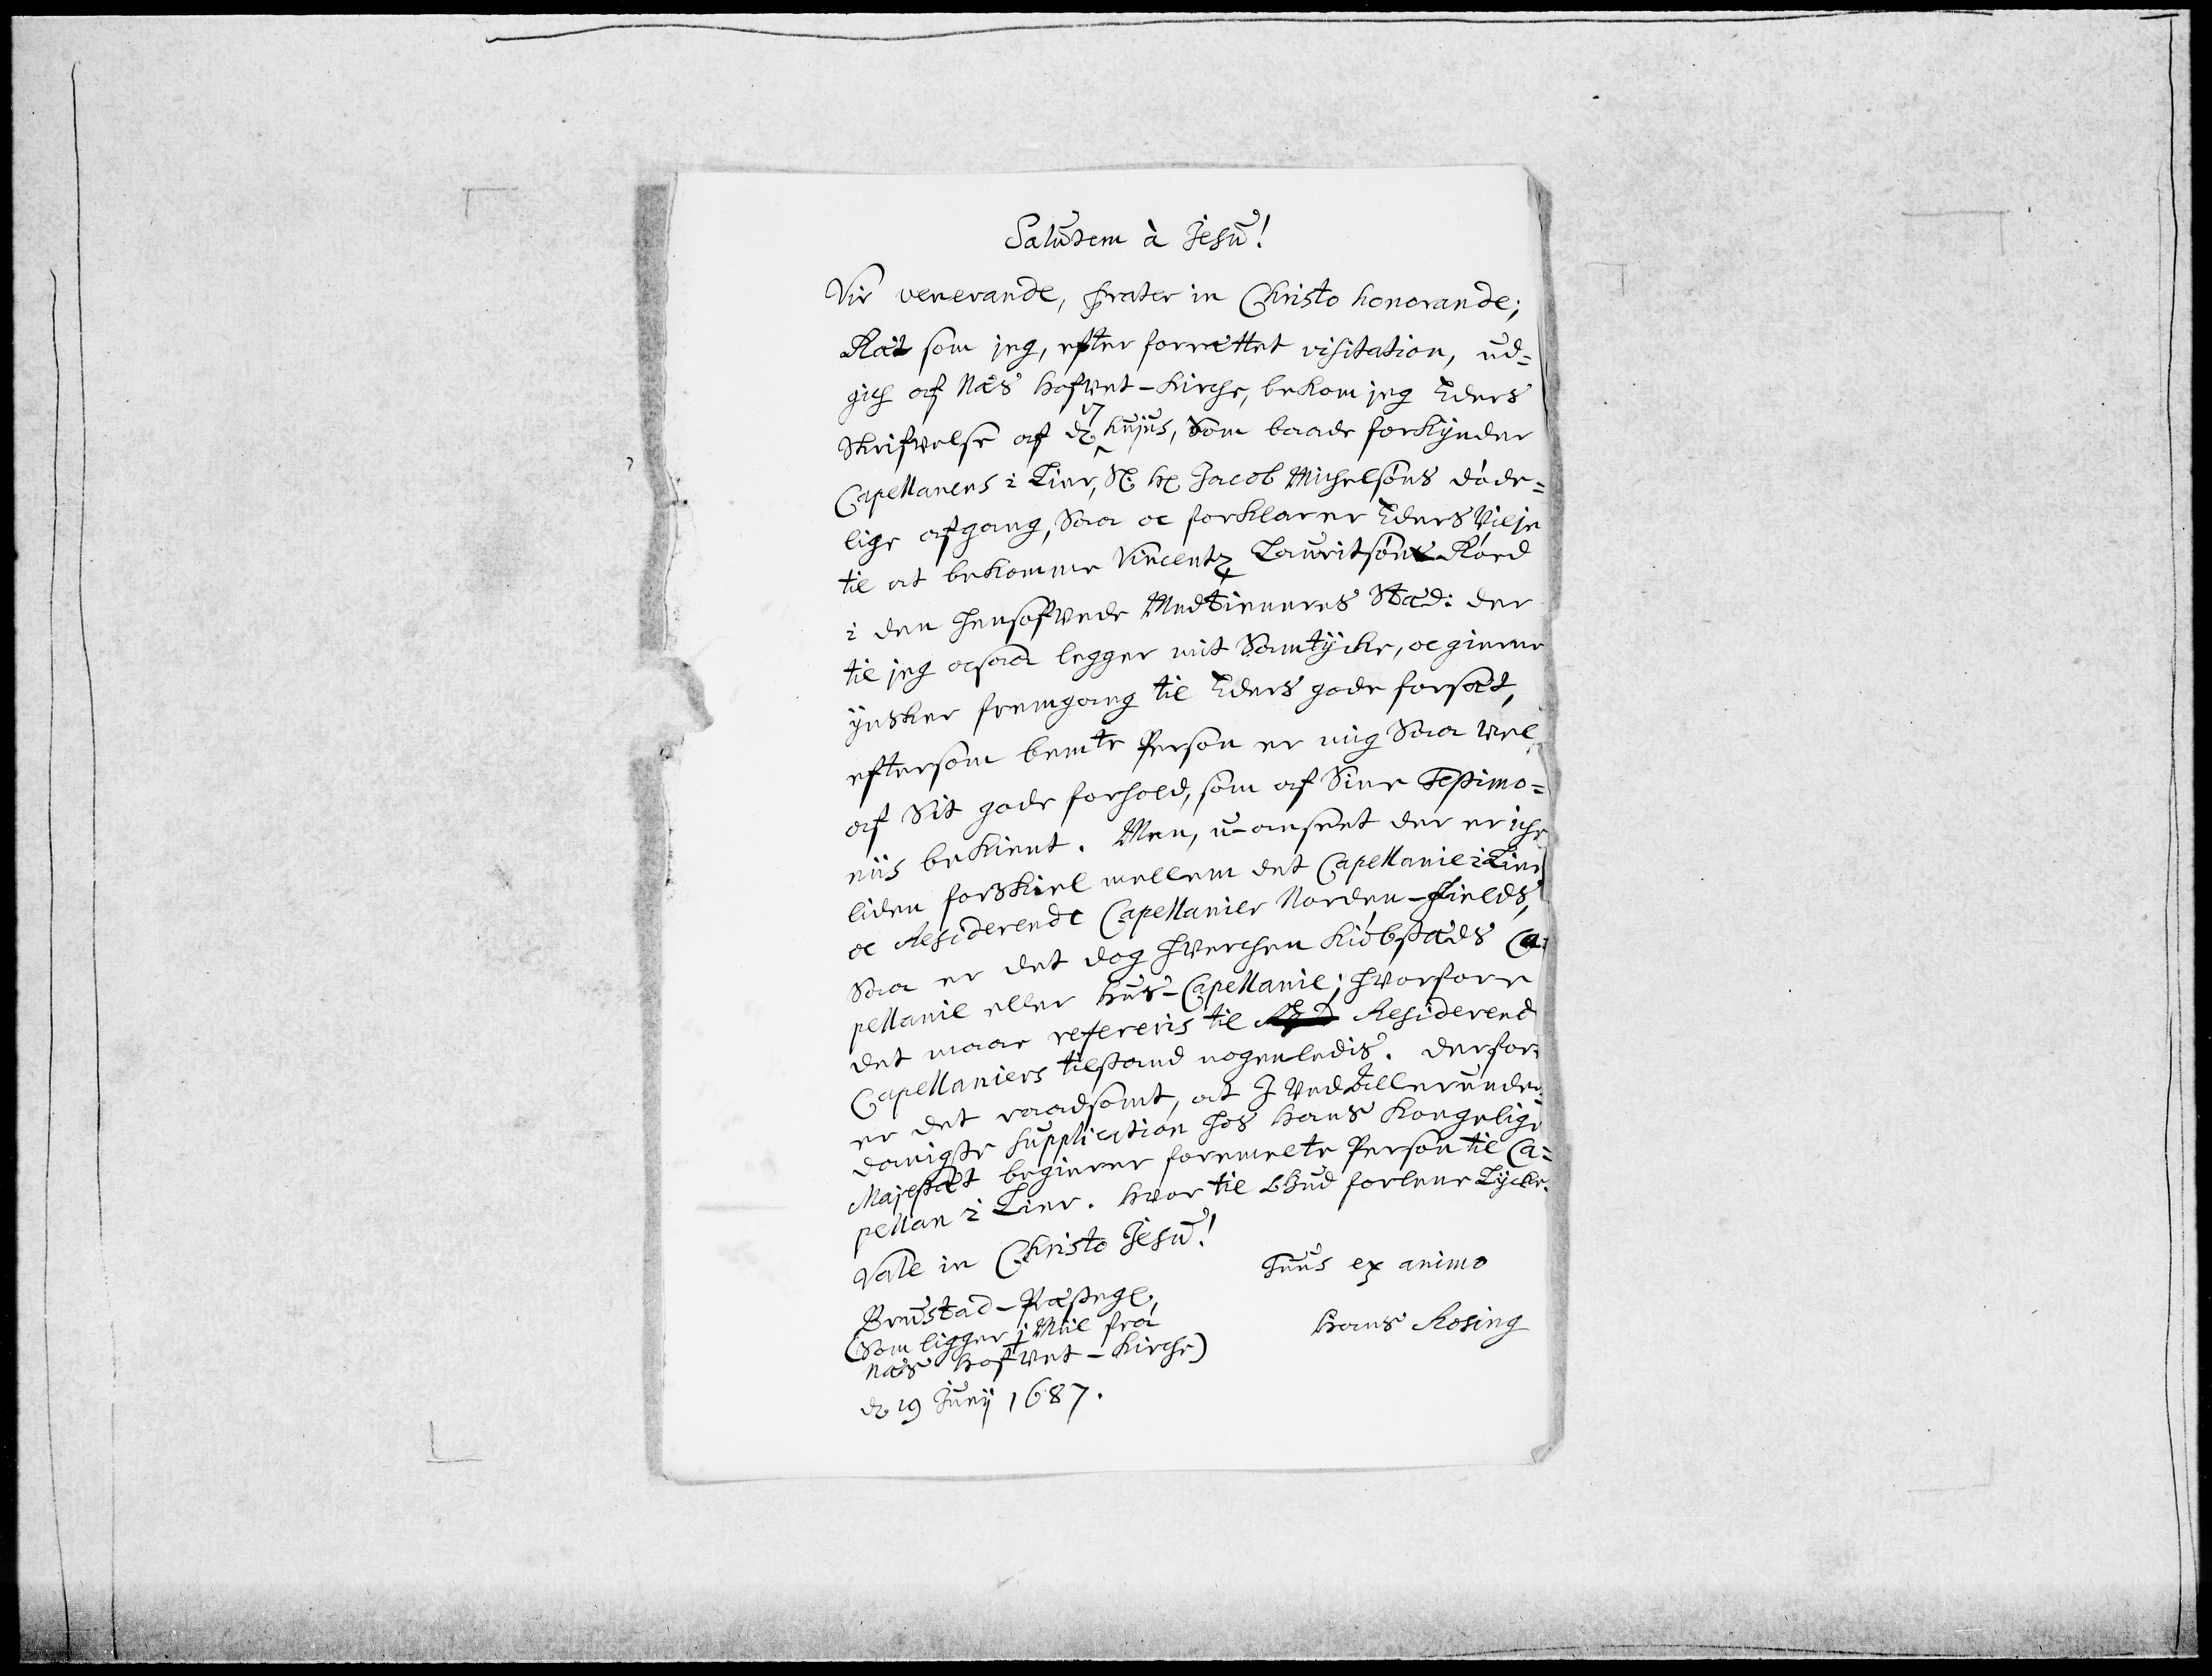 Salutem à Jesu!
Vir venerande, frater in Christo honorande;
Ræt som jeg, efter forrættet visitation, ud=
gich af Næs hofvet-kirche, bekom jeg Eders
Skrifvelse af dz 7 hujus, Som baade forkynder
Capellanens i Lier, Sl: hr Jacob Michelsøns døde=
lige afgang, Saa oc forklarer Eders Vilje
til at bekomme Vincentz Lauritsøn Røed
i den hensofvede Medtieneres Stæd: der
til jeg ocsaa legger mit Samtycke, oc gierne
ynsker fremgang til Eders gode forsæt,
eftersom bemte Person er mig Saa vel
af Sit gode forhold, som af Sine Testimo=
niis bekient. Men, u-anseet der er iche
liden forskiel mellem det Capellanie i Lier
oc Residerende Capellanier Norden-fields,
Saa er det dog hverchen Kiøbstæds Ca=
pellanie eller huus-Capellanie; hvorfore
det maae refereris til Residerend
Capellaniers tilstand nogenledis. Derfor
er det raadsomt, at I Ved Allerunder=
danigste Supplication hos hans Kongelige
Majestæt begierer foremelte Person til Ca=
pellan i Lier. hvor til Gud forlene Lycke.
Vale in Christo Jesu!
Tuus ex animo
Hans Rosing
Brustad-Præstegl,
(Som ligger j Miil fra
Næs hofvet-Kirche)
dz 19 Junij 1687.